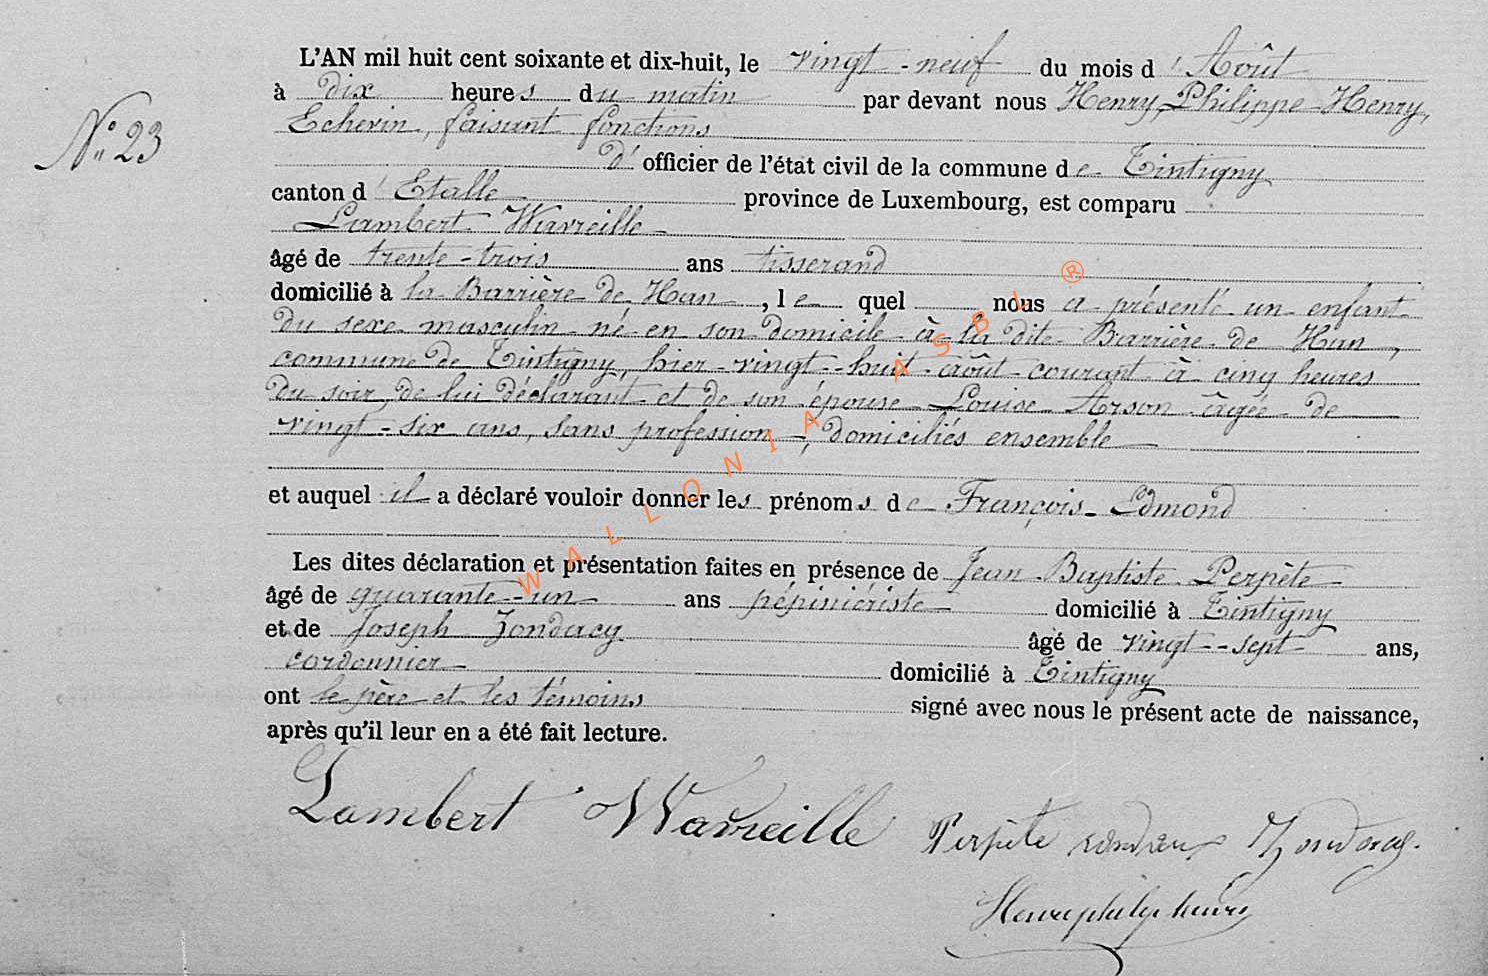 L'AN mil huit cent soixante et dix-huit, le vingt-neuf du mois d'Août
à dix heures du matin par devant nous Henry, Philippe Henry,
Echevin, faisant fonctions
d'officier de l'état civil de la commune de Tintigny
canton d'Etalle province de Luxembourg, est comparu
Lambert Wavreille
âgé de trente-trois ans tisserand
domicilié à la Barrière de Han, le quel nous a présenté un enfant
du sexe masculin né en son domicile à la dite Barrière de Han,
commune de Tintigny, hier vingt-huit août courant à cinq heures
du soir de lui déclarant et de son épouse Louise Arson âgée de
vingt-six ans, sans profession, domiciliés ensemble
et auquel il a déclaré vouloir donner les prénoms de François-Edmond
Les dites déclaration et présentation faites en présence de Jean Baptiste Perpète
âgé de quarante-un ans pépiniériste domicilié à Tintigny
et de Joseph Zondacq âgé de vingt-sept ans,
cordonnier domicilié à Tintigny
ont le père et les témoins signé avec nous le présent acte de naissance,
après qu'il leur en a été fait lecture.
N° 23
Lambert Wavreille Perpète Zondacq
WALLONIA ASBL ®